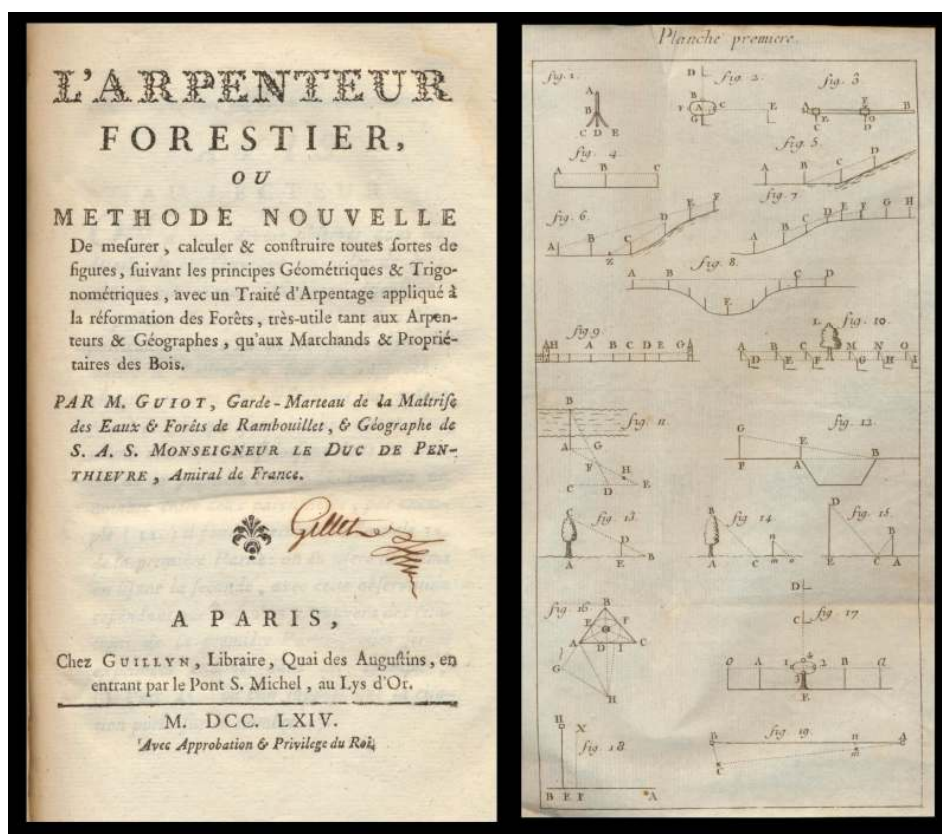 L'ARPENTEUR
FORESTIER,
OU
METHODE NOUVELLE
De meſurer, calculer & conſtruire toutes ſortes de
figures, ſuivant les principes Géométriques & Trigo-
nométriques, avec un Traité d'Arpentage appliqué à
la réformation des Forêts, très-utile tant aux Arpen-
teurs & Géographes, qu'aux Marchands & Proprié-
taires des Bois.
PAR M. GUIOT, Garde-Marteau de la Maîtriſe
des Eaux & Forêts de Rambouillet, & Géographe de
S. A. S. MONSEIGNEUR LE DUC DE PEN-
THIEVRE, Amiral de France.
A PARIS,
Chez GUILLYN, Libraire, Quai des Auguſtins, en
entrant par le Pont S. Michel, au Lys d'Or.
M. DCC. LXIV.
Avec Approbation & Privilege du Roi.
Planche premiere.
fig. 1. A B C D E
fig. 2. D B F A C E G
fig. 3 A F B E G C D
fig. 4 A B C
fig. 5. A B C D
fig. 6. A B Z C D E F
fig. 7 A B C D E F G H
fig. 8. A B C D E
fig. 9. H A B C D E G
fig. 10. A B C L M N O D E F G H I
fig. 11. B A G F H C D E
fig. 12. G E F A B
fig. 13. C D A E B
fig. 14 B A C n m o
fig. 15. D B E C A
fig. 16 B E F A D I C G H
fig. 17 D C O A 1 2 B Q 3 E
fig. 18 H X B E F A
fig. 19. B n A m C